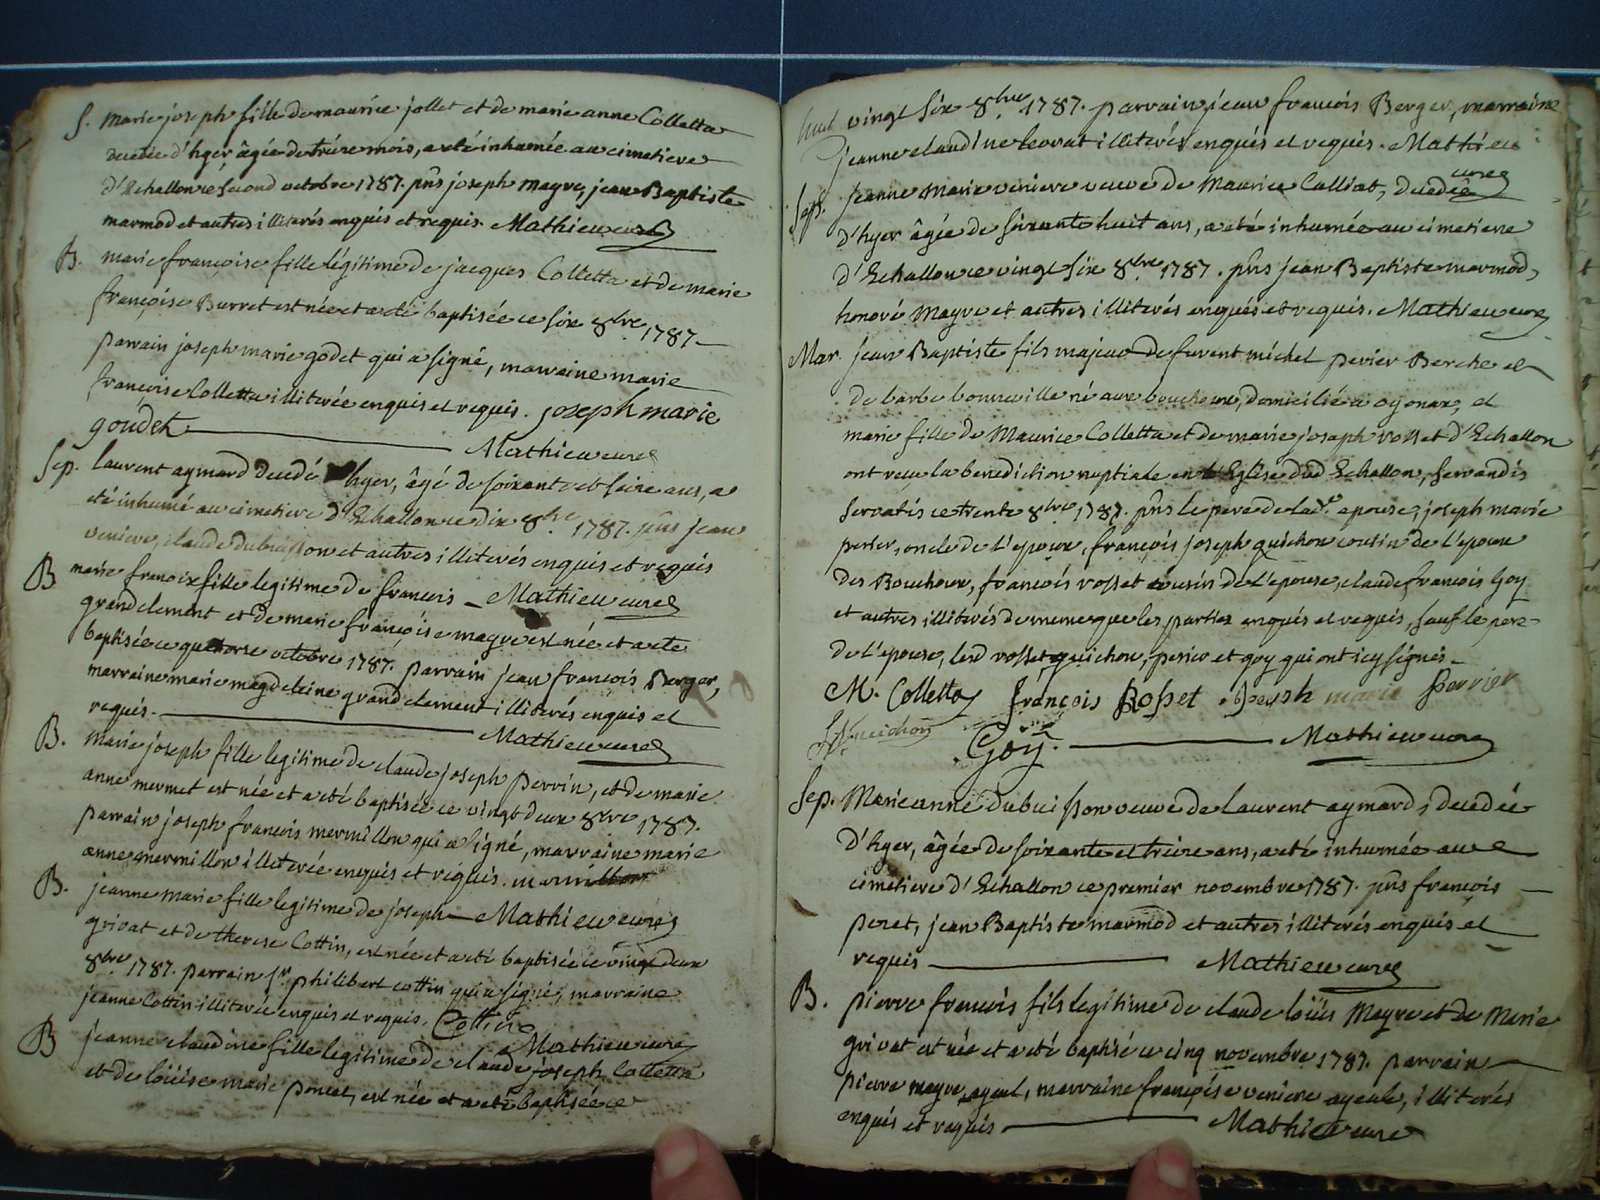 S. marie joseph fille de maurice jollet et de marie anne Colletta
decedée d'hyer, âgée de treize mois, a eté inhumée au cimetiere
d'Echallon ce second octobre 1787. pns joseph mayre, jean Baptiste
marmod et autres illiterés enquis et requis. Mathieu curé
B. marie françoise fille légitime de jacques Colletta et de marie
françoise Burret est née et a eté baptisée ce six 8bre 1787
parrain joseph marie godet qui a signé, marraine marie
françoise Colletta illiterée enquis et requis. joseph marie
goudet Mathieu curé
Sep. laurent aymard decedé hyer, âgé de soixante et seize ans, a
eté inhumé au cimetiere d'Echallon ce dix 8bre 1787. pns jean
veniere, claude dubuisson et autres illiterés enquis et requis
B marie françoise fille legitime de francois Mathieu curé
grandclement et de marie françoise mayre est née et a eté
baptisée ce quatorse octobre 1787. parrain jean francois Berger,
marraine marie magdeleine grandclement illiterés enquis et
requis. Mathieu curé
B. marie joseph fille legitime de claude joseph perrin, et de marie
anne mermet est née et a eté baptisée ce vingt deux 8bre 1787.
parrain joseph francois mermillon qui a signé, marraine marie
anne mermillon illiterée enquis et requis. mermillon
B. jeanne marie fille legitime de joseph Mathieu curé
grivat et de therese Cottin, est née et a eté baptisée ce vingt deux
8bre 1787. parrain Sr. philibert cottin qui a signé, marraine
jeanne Cottin illiterée enquis et requis. Cottin
Mathieu curé
B jeanne claudine fille legitime de claude joseph Colletta
et de loüise marie poncet, est née et a eté baptisée ce
vingt six 8bre 1787. parrain jean francois Berger, marraine
jeanne claudine illiterés enquis et requis. Mathieu
curé
Sep. jeanne marie veniere veuve de Maurice Culliat, decedée
d'hyer âgée de soixante huit ans, a eté inhumée au cimetiere
d'Echallon ce vingt six 8bre 1787. pns jean Baptiste marmod,
honoré mayre et autres illiterés enquis et requis. Mathieu curé
Mar. jean Baptiste fils majeur de furent michel perier Berche et
de barbe bonneville né aux bouchoux, domicilié a oyonax, et
marie fille de Maurice Colletta et de marie joseph rosset d'Echallon
ont reçu la benediction nuptiale en l'Eglise dud Echallon, servandis
servatis ce trente 8bre 1787. pns le pere de lad. epouse, joseph marie
perier, oncle de l'epoux, françois joseph guichon cousin de l'epoux
des Bouchoux, françois rosset cousin de l'epouse, claude françois Goy
et autres illiterés de meme que les parties enquis et requis, sauf le pere
de l'epouse, lesd rosset, guichon, perier et goy qui ont icy signés
M. Colletta françois Rosset joseph marie perrier
guichon Goy. Mathieu curé
Sep. Marie anne dubuisson veuve de Laurent aymard, decedée
d'hyer, âgée de soixante et treize ans, a eté inhumée au
cimetiere d'Echallon ce premier novembre 1787. pns françois
poret, jean Baptiste marmod et autres illiterés enquis et
requis Mathieu curé
B. pierre francois fils legitime de claude loüis Mayre et de Marie
grivat est née et a eté baptisé ce cinq novembre 1787. parrain
pierre mayre ayeul, marraine françoise veniere ayeule, illiterés
enquis et requis Mathieu curé